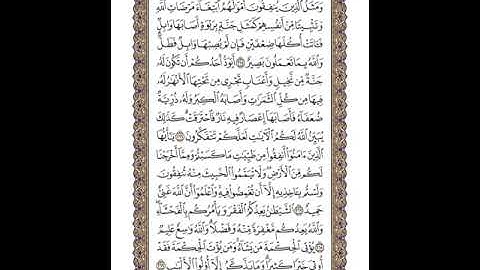 وَمَثَلُ الَّذِينَ يُنفِقُونَ أَمْوَالَهُمُ ابْتِغَاءَ مَرْضَاتِ اللَّهِ
وَتَثْبِيتًا مِّنْ أَنفُسِهِمْ كَمَثَلِ جَنَّةٍ بِرَبْوَةٍ أَصَابَهَا وَابِلٌ
فَآتَتْ أُكُلَهَا ضِعْفَيْنِ فَإِن لَّمْ يُصِبْهَا وَابِلٌ فَطَلٌّ
وَاللَّهُ بِمَا تَعْمَلُونَ بَصِيرٌ ﴿٢٦٥﴾ أَيَوَدُّ أَحَدُكُمْ أَن تَكُونَ لَهُ
جَنَّةٌ مِّن نَّخِيلٍ وَأَعْنَابٍ تَجْرِي مِن تَحْتِهَا الْأَنْهَارُ لَهُ
فِيهَا مِن كُلِّ الثَّمَرَاتِ وَأَصَابَهُ الْكِبَرُ وَلَهُ ذُرِّيَّةٌ
ضُعَفَاءُ فَأَصَابَهَا إِعْصَارٌ فِيهِ نَارٌ فَاحْتَرَقَتْ كَذَٰلِكَ
يُبَيِّنُ اللَّهُ لَكُمُ الْآيَاتِ لَعَلَّكُمْ تَتَفَكَّرُونَ ﴿٢٦٦﴾ يَا أَيُّهَا
الَّذِينَ آمَنُوا أَنفِقُوا مِن طَيِّبَاتِ مَا كَسَبْتُمْ وَمِمَّا أَخْرَجْنَا
لَكُم مِّنَ الْأَرْضِ وَلَا تَيَمَّمُوا الْخَبِيثَ مِنْهُ تُنفِقُونَ
وَلَسْتُم بِآخِذِيهِ إِلَّا أَن تُغْمِضُوا فِيهِ وَاعْلَمُوا أَنَّ اللَّهَ غَنِيٌّ
حَمِيدٌ ﴿٢٦٧﴾ الشَّيْطَانُ يَعِدُكُمُ الْفَقْرَ وَيَأْمُرُكُم بِالْفَحْشَاءِ
وَاللَّهُ يَعِدُكُم مَّغْفِرَةً مِّنْهُ وَفَضْلًا وَاللَّهُ وَاسِعٌ عَلِيمٌ
﴿٢٦٨﴾ يُؤْتِي الْحِكْمَةَ مَن يَشَاءُ وَمَن يُؤْتَ الْحِكْمَةَ فَقَدْ
أُوتِيَ خَيْرًا كَثِيرًا وَمَا يَذَّكَّرُ إِلَّا أُولُو الْأَلْبَابِ ﴿٢٦٩﴾